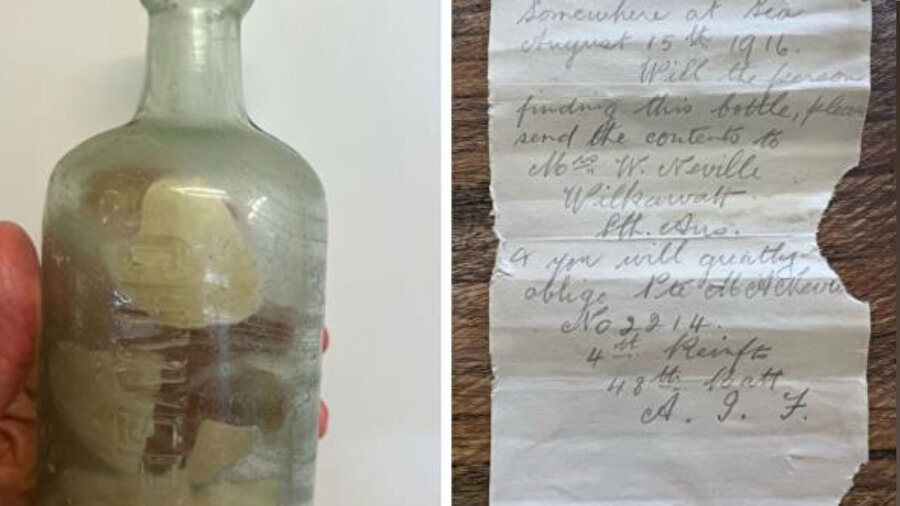 Somewhere at Sea
August 15th 1916.
Will the person
finding this bottle, please
send the contents to
Mrs W. Neville
Wilkawatt
Sth. Aus.
& you will greatly
oblige Pte M A Neville
No 2214.
4th Reinft
48th Batt
A. I. F.